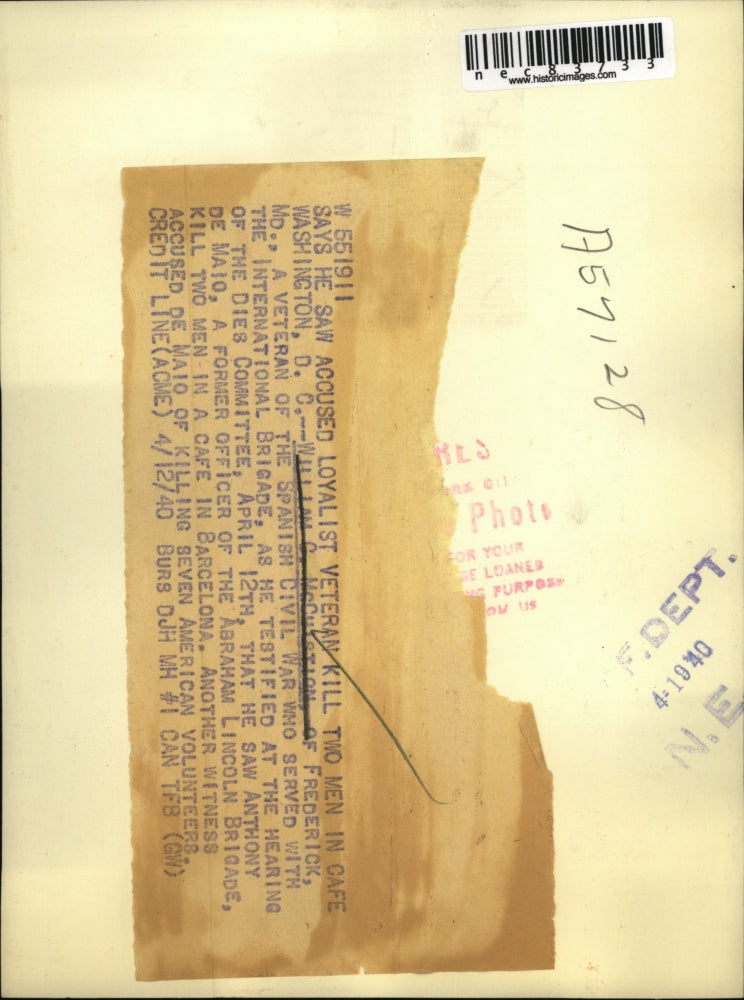 nec83733
www.historicimages.com
A57128
W 551911
SAYS HE SAW ACCUSED LOYALIST VETERAN KILL TWO MEN IN CAFE
WASHINGTON, D. C.--WILLIAM C. OF FREDERICK,
MD., A VETERAN OF THE SPANISH CIVIL WAR WHO SERVED WITH
THE INTERNATIONAL BRIGADE, AS HE TESTIFIED AT THE HEARING
OF THE DIES COMMITTEE, APRIL 12TH, THAT HE SAW ANTHONY
DE MAIO, A FORMER OFFICER OF THE ABRAHAM LINCOLN BRIGADE,
KILL TWO MEN IN A CAFE IN BARCELONA. ANOTHER WITNESS
ACCUSED DE MAIO OF KILLING SEVEN AMERICAN VOLUNTEERS.
CREDIT LINE(ACME) 4/12/40 BURS DJH MH #1 CAN TFB (GW)
Photo
FOR YOUR
BE LOANED
NG PURPOSE
OM US
F. DEPT.
4-1940
N. E